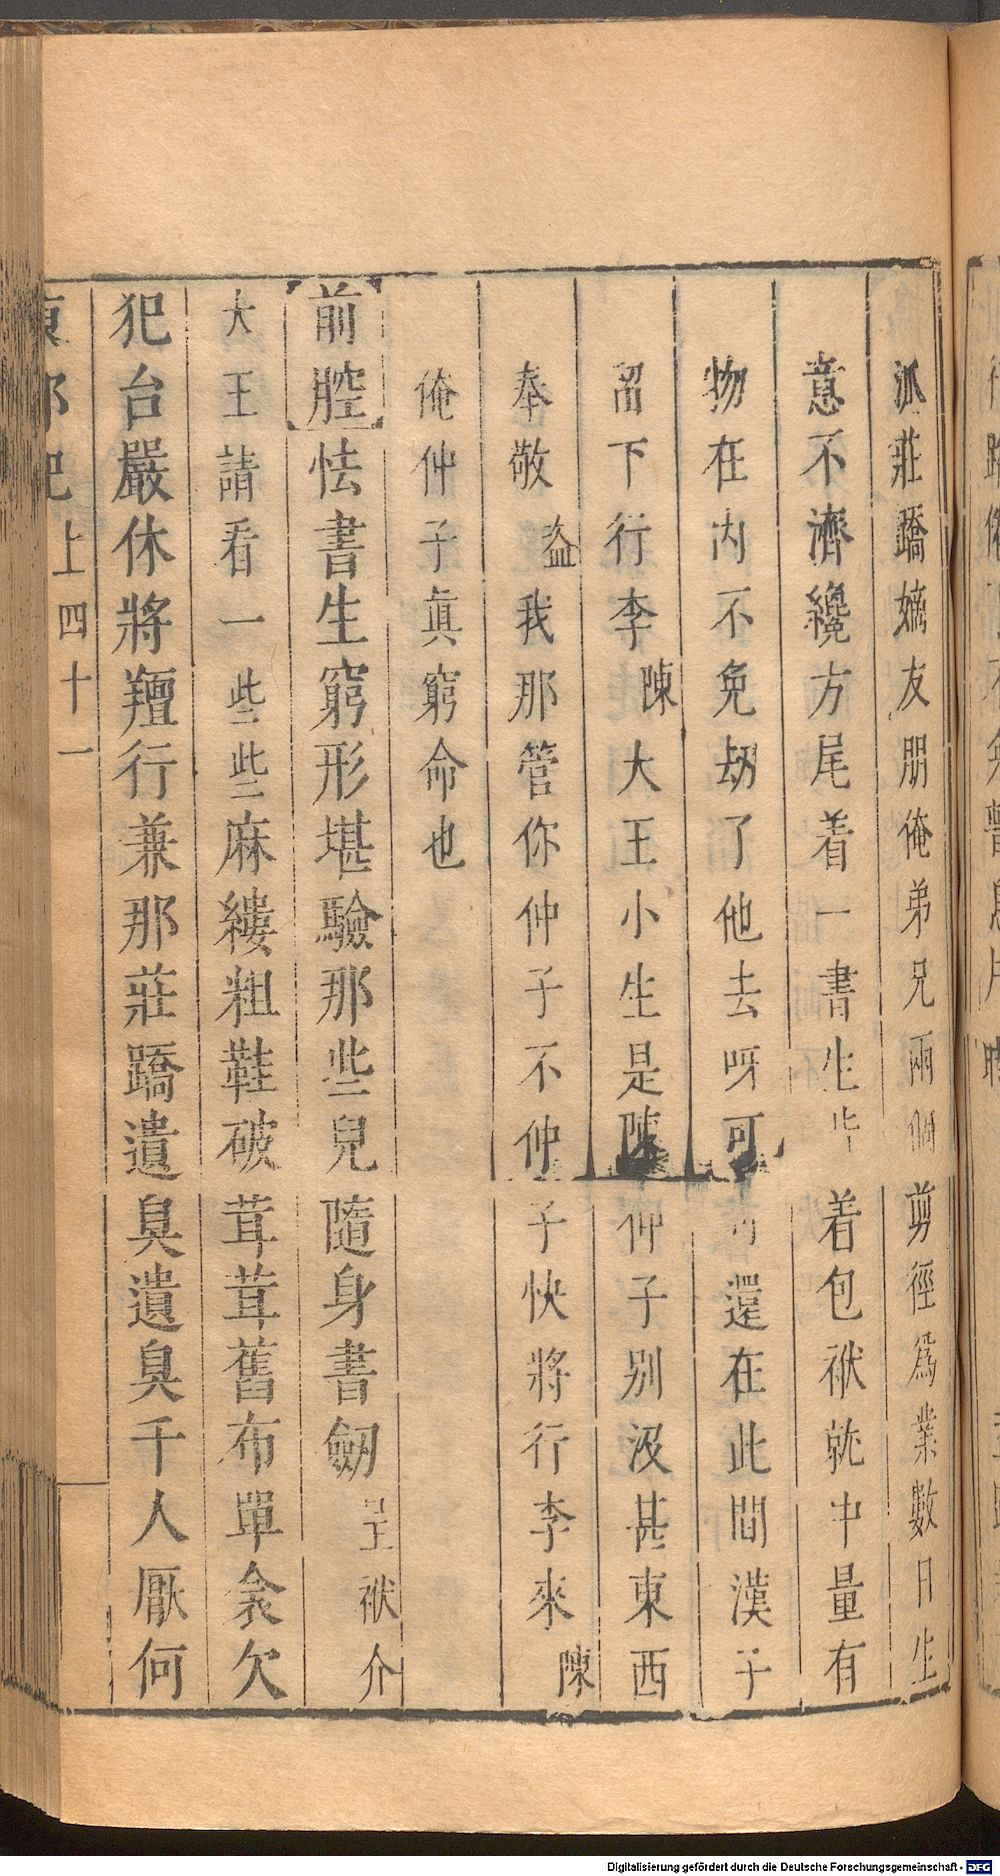 派莊蹻嫡友朋俺弟兄兩個剪徑爲業數日生
意不濟纔方尾着一書生 着包袱就中量有
物在内不免刼了他去呀可 還在此間漢子
留下行李陳大王小生是陳仲子别没甚東西
奉敬盜我那管你仲子不仲子快將行李來陳
俺仲子眞窮命也
前腔怯書生窮形堪驗那些兒隨身書劔呈袱介
大王請看一些些麻縷粗鞋破茸茸舊布單衾欠
犯台嚴休將羶行兼那莊蹻遺臭遺臭千人厭何
東郭記上四十一
Digitalisierung gefördert durch die Deutsche Forschungsgemeinschaft - DFG